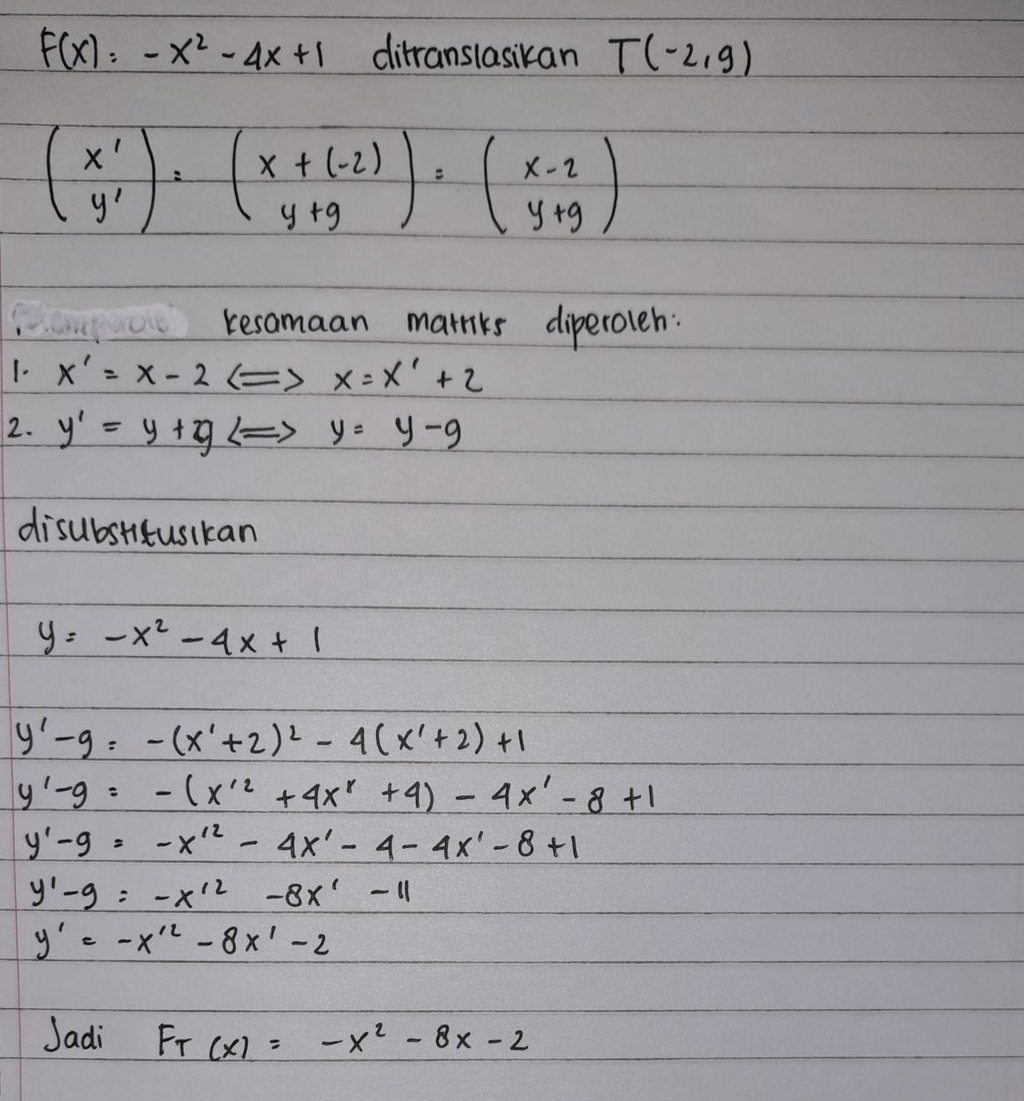 F(x) = -x² - 4x + 1 ditranslasikan T(-2,9)
(x' y') = (x + (-2) y + 9) = (x - 2 y + 9)
kesamaan matriks diperoleh:
1. x' = x - 2 <=> x = x' + 2
2. y' = y + 9 <=> y = y - 9
disubstitusikan
y = -x² - 4x + 1
y' - 9 = -(x' + 2)² - 4(x' + 2) + 1
y' - 9 = -(x'² + 4x' + 4) - 4x' - 8 + 1
y' - 9 = -x'² - 4x' - 4 - 4x' - 8 + 1
y' - 9 = -x'² - 8x' - 11
y' = -x'² - 8x' - 2
Jadi F_T (x) = -x² - 8x - 2